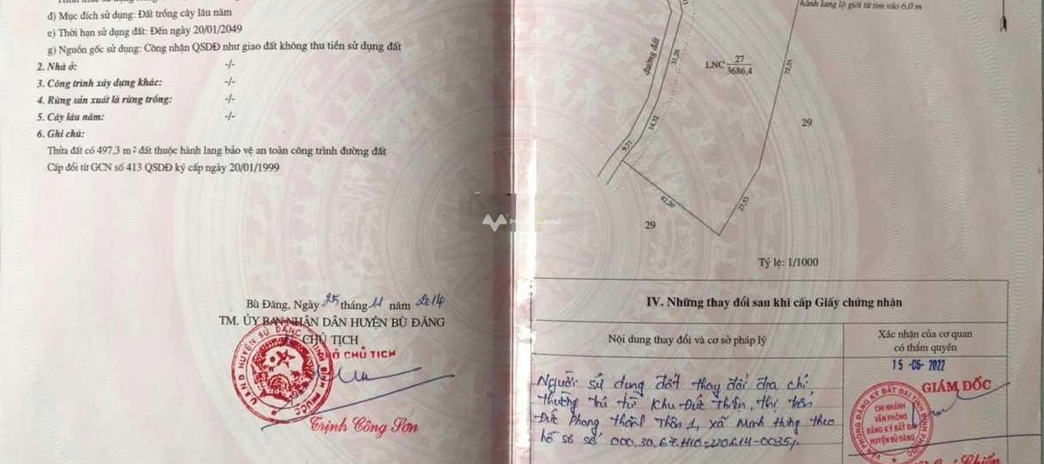 đ) Mục đích sử dụng: Đất trồng cây lâu năm
e) Thời hạn sử dụng đất: Đến ngày 20/01/2049
g) Nguồn gốc sử dụng: Công nhận QSDĐ như giao đất không thu tiền sử dụng đất
2. Nhà ở: -/-
3. Công trình xây dựng khác: -/-
4. Rừng sản xuất là rừng trồng: -/-
5. Cây lâu năm: -/-
6. Ghi chú:
Thửa đất có 497,3 m² đất thuộc hành lang bảo vệ an toàn công trình đường đất
Cấp đổi từ GCN số 413 QSDĐ ký cấp ngày 20/01/1999
Bù Đăng, Ngày 25 tháng 11 năm 2014
TM. ỦY BAN NHÂN DÂN HUYỆN BÙ ĐĂNG
CHỦ TỊCH
CHỦ TỊCH
Trịnh Công Sơn
hành lang lộ giới từ tim vào 6,0 m
đường đất
LNC 27
3686,4
29
29
42,20
23,53
14,32
9,71
Tỷ lệ: 1/1000
IV. Những thay đổi sau khi cấp Giấy chứng nhận
Nội dung thay đổi và cơ sở pháp lý
Xác nhận của cơ quan
có thẩm quyền
15-06-2022
GIÁM ĐỐC
Người sử dụng đất thay đổi địa chỉ
thường trú từ Khu Đức Thiện, thị trấn
Đức Phong thành Thôn 1, xã Minh Hưng theo
hồ sơ số
CHI NHÁNH
VĂN PHÒNG
ĐĂNG KÝ ĐẤT ĐAI
HUYỆN BÙ ĐĂNG